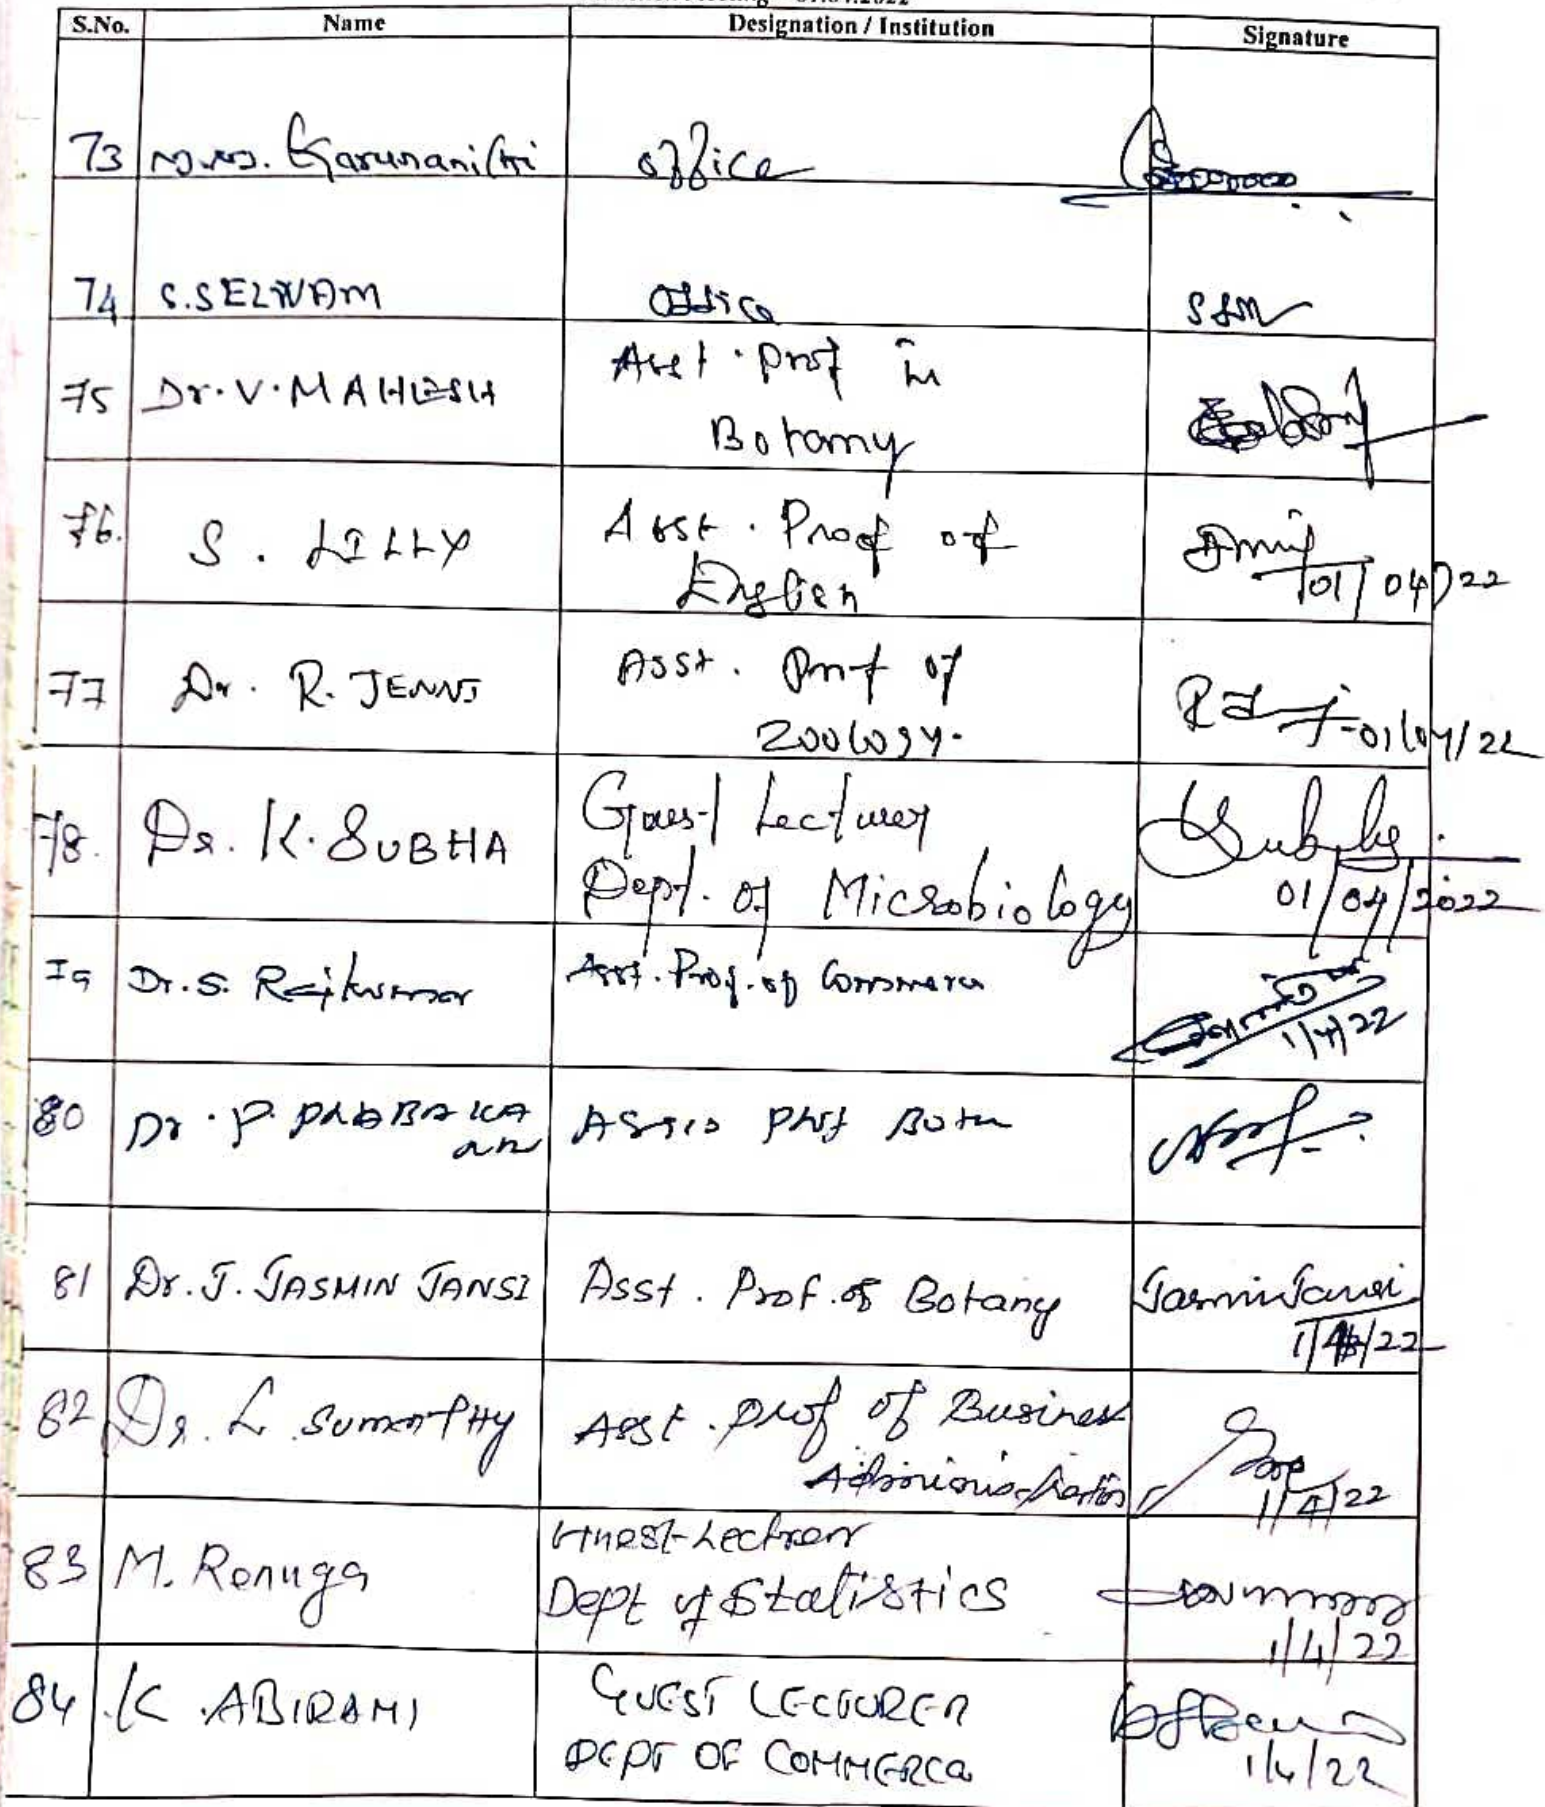 S.No. Name Designation / Institution Signature
73 Karunanithi office
74 S.SELVAM office
75 Dr.V.MAHESH Asst. Prof in
Botany
76. S. LILLY Asst. Proof of
English
01/04/22
77 Dr. R. JENNI Asst. Prof of
Zoology.
01/04/22
78. Dr. K. SUBHA Guest Lecturer
Dept. of Microbiology
01/04/2022
79 Dr. S. Rajkumar Asst. Prof. of Commerce
1/4/22
80 Dr. P. PRABAKA
ran
81 Dr. J. JASMIN JANSI Asst. Prof. of Botany JasminJansi
1/4/22
82 Dr. L. SUMATHY Asst. prof of Business
Administration
1/4/22
83 M. Renuga Guest-Lecturer
Dept of Statistics
1/4/22
84 K. ABIRAMI GUEST LECTURER
DEPT OF COMMERCE
1/4/22